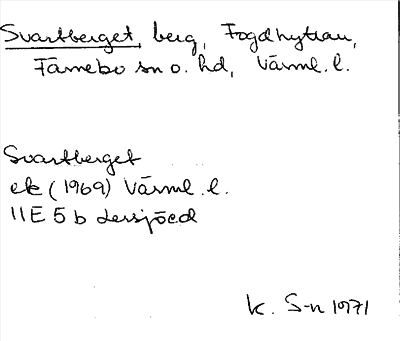 Svartberget, berg, Fogdhyttan,
Färnebo sn o. hd, Värml. l.
Svartberget
ek (1969) Värml. l.
11E 5 b Lersjöed
K. S-n 1971